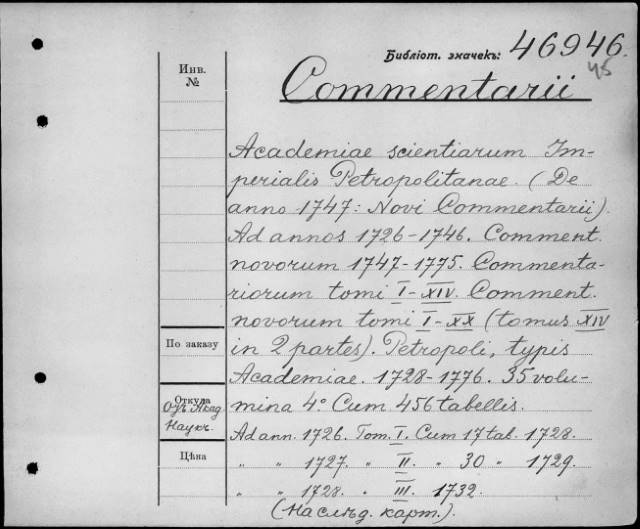 Библіот. значекъ: 46946.
45
Инв.
№
Commentarii
Academiae scientiarum Im-
perialis Petropolitanae. (De
anno 1747: Novi Commentarii).
Ad annos 1726-1746. Comment.
novorum 1747-1775. Commenta-
riorum tomi I-XIV. Comment.
novorum tomi I-XX (tomus XIV
По заказу
in 2 partes). Petropoli, typis
Academiae. 1728-1776. 35 volu-
Откуда
Отъ Акад.
Наукъ.
mina 4º Cum 456 tabellis.
Ad ann. 1726. Tom. I. Cum 17 tab. 1728.
Цѣна
" " 1727. " II. " 30 " 1729.
" " 1728. " III. 1732.
(На слѣд. карт.).